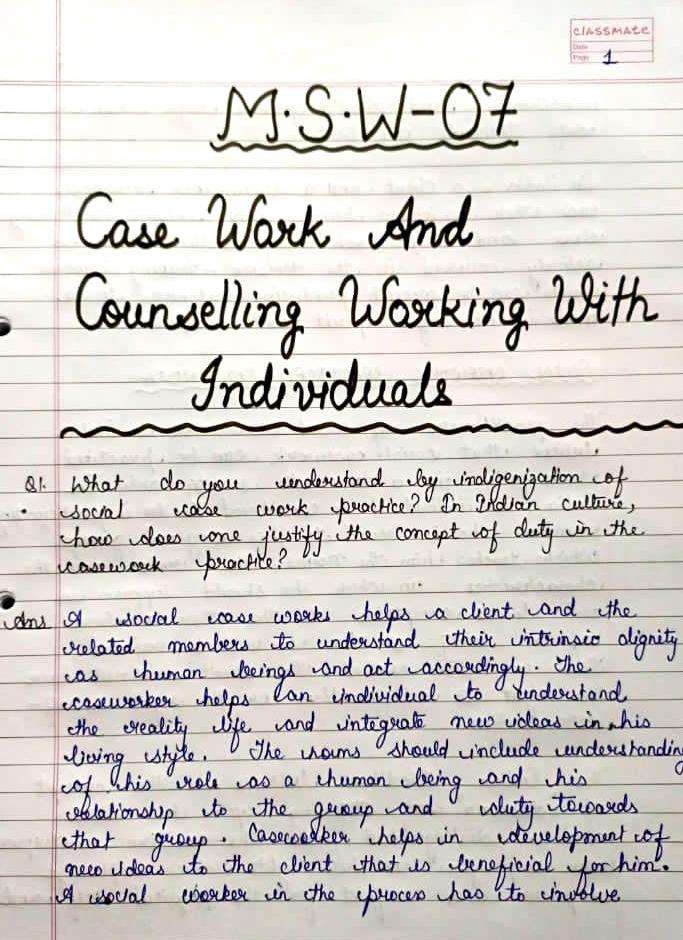 CLASSMATE
Date
Page 1
M.S.W-07
Case Work And
Counselling Working With
Individuals
Q1. What do you understand by indigenization of
social case work practice? In Indian culture,
how does one justify the concept of duty in the
casework practice?
Ans A social case works helps a client and the
related members to understand their intrinsic dignity
as human beings and act accordingly. The
caseworker helps an individual to understand
the reality life and integrate new ideas in his
living style. The norms should include understanding
of his role as a human being and his
relationship to the group and duty towards
that group. Caseworker helps in development of
new ideas to the client that is beneficial for him.
A social worker in the process has to involve